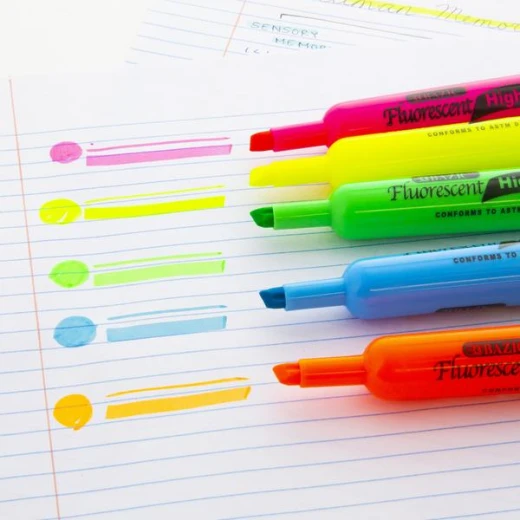 Human Memor
SENSORY
MEMOR
BAZIC
Fluorescent High
CONFORMS TO ASTM D
BAZIC
Fluorescent Hi
CONFORMS TO ASTM
CONFORMS TO
BAZIC
Fluoresce